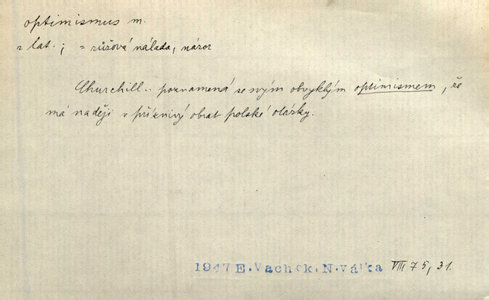 optimismus m.
z lat. ; = růžová nálada, názor
Churchill.. poznamená se svým obvyklým optimismem, že
má naději v příznivý obrat polské otázky.
1947 E. Vachek. N. válka VIII 75, 31.